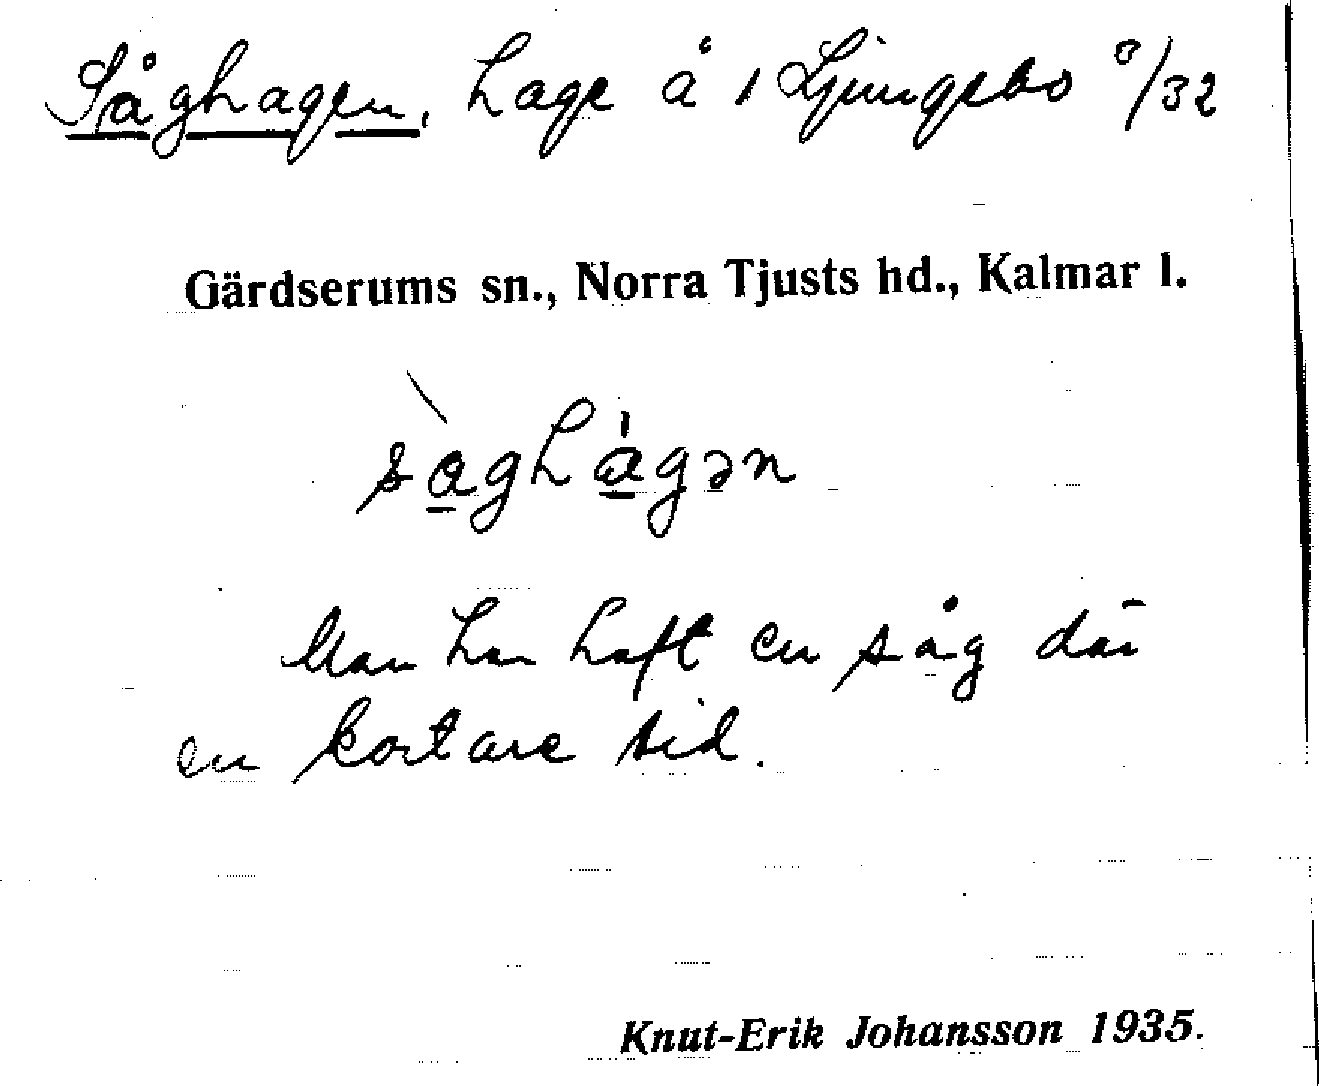 Såghagen, hage å 1 Ljungsbo 8/32
Gärdserums sn., Norra Tjusts hd., Kalmar l.
sàghágən
Man har haft en såg där
en kortare tid.
Knut-Erik Johansson 1935.